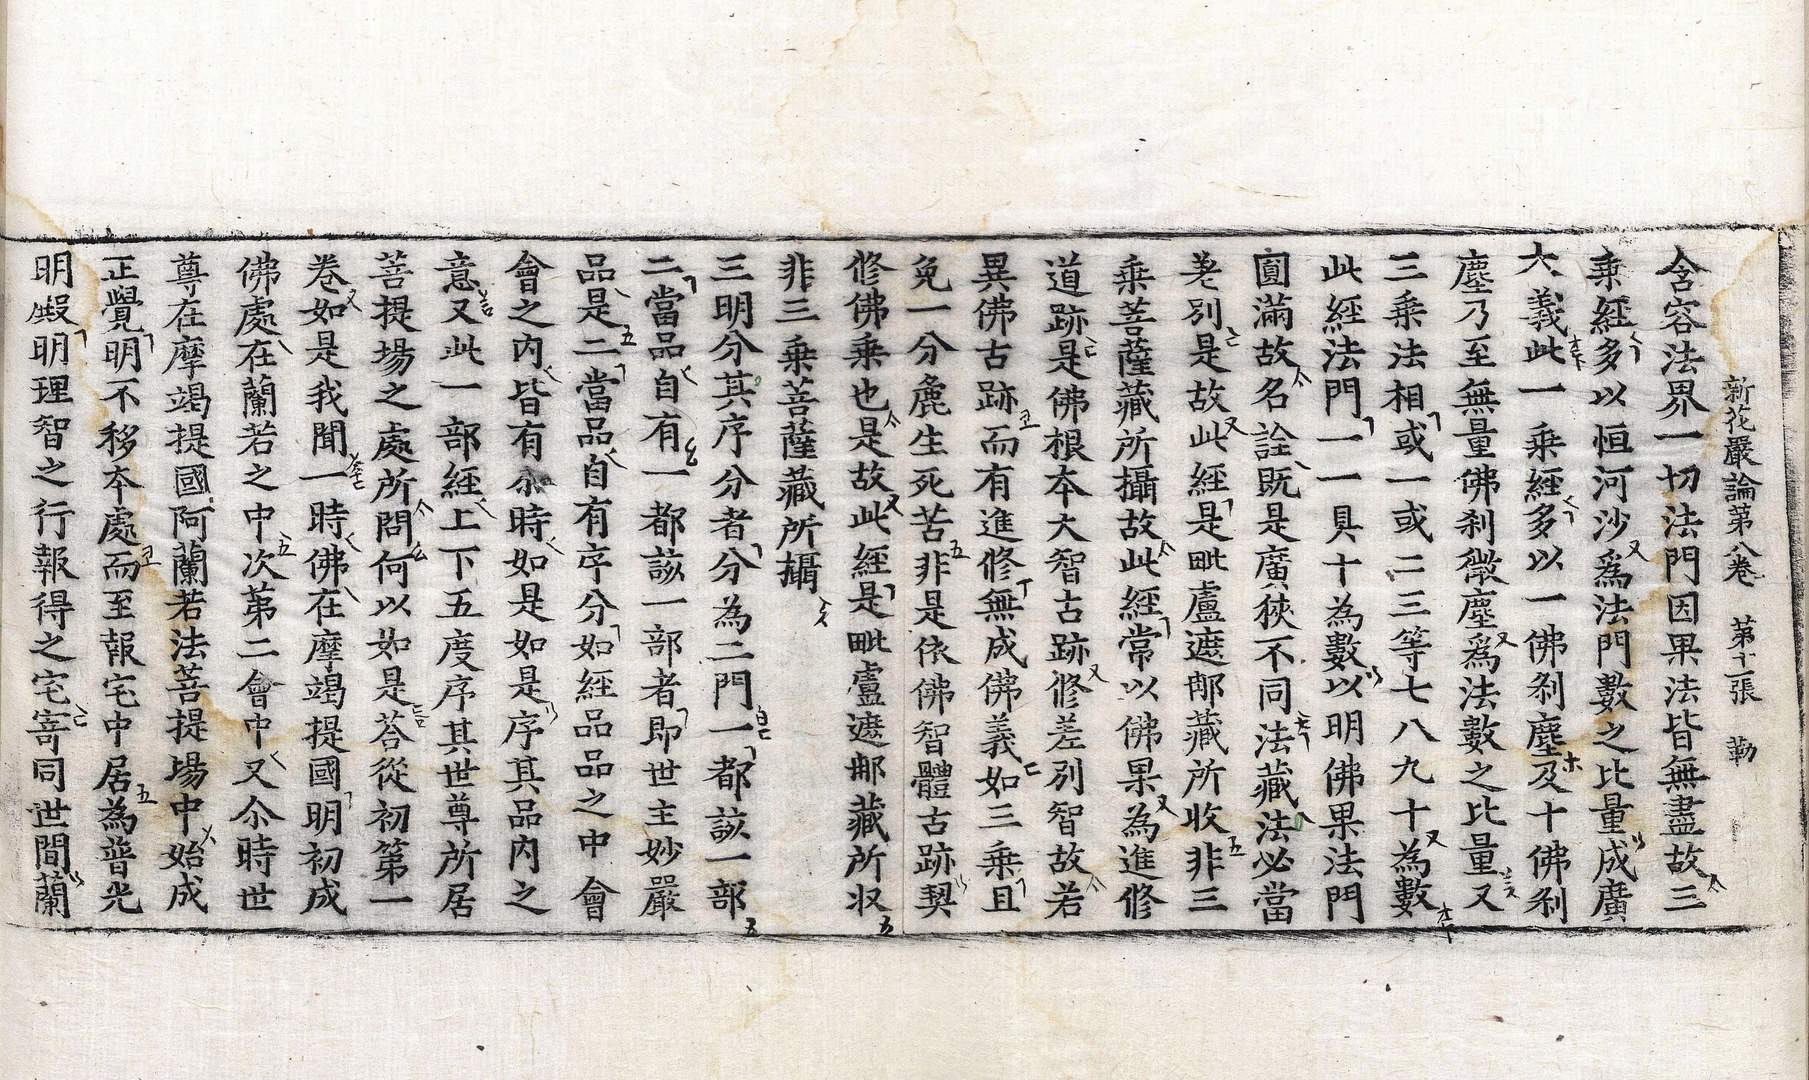 新花嚴論第八卷　第十二張　勒
含容法界一切法門因果法皆無盡故三
乗經多以恒河沙爲法門數之比量成廣
大義此一乗經多以一佛刹塵及十佛刹
塵乃至無量佛刹微塵爲法數之比量又
三乗法相或一或二三等七八九十為數
此經法門一一具十為數以明佛果法門
圎滿故名詮既是廣狹不同法藏法必當
差別是故此經是毗盧遮那藏所收非三
乗菩薩藏所攝故此經常以佛果為進修
道跡是佛根本大智古跡修差別智故若
異佛古跡而有進修無成佛義如三乗且
免一分麁生死苦非是依佛智體古跡契
修佛乗也是故此經是毗盧遮那藏所収
非三乗菩薩藏所攝
三明分其序分者分為二門一都該一部
二當品自有一都該一部者即世主妙嚴
品是二當品自有序分如經品品之中會
會之内皆有尒時如是如是序其品内之
意又此一部經上下五度序其世尊所居
菩提場之處所問何以如是荅從初第一
卷如是我聞一時佛在摩竭提國明初成
佛處在蘭若之中次第二會中又尒時世
尊在摩竭提國阿蘭若法菩提場中始成
正覺明不移本處而至報宅中居為普光
明殿明理智之行報得之宅寄同世間蘭